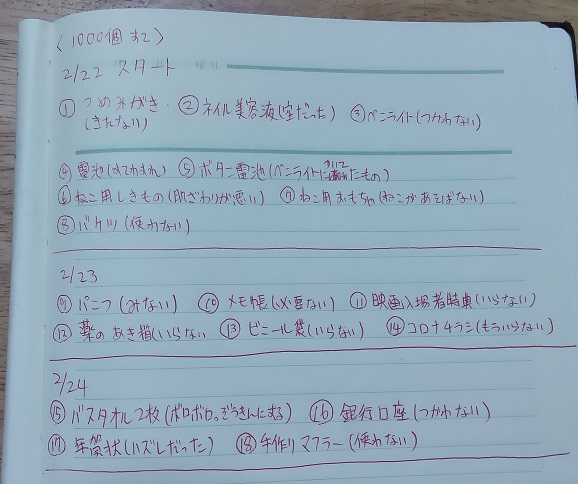 〈1000個すて〉
2/22 スタート
① つめみがき ② ネイル美容液(空だった) ③ ペンライト(つかわない)
(きたない)
④ 電池(すてわすれ) ⑤ ボタン電池(ペンライトについてたもの)
⑥ ねこ用しきもの(肌ざわりが悪い) ⑦ ねこ用おもちゃ(ねこがあそばない)
⑧ バケツ(使わない)
2/23
⑨ パンフ(みない) ⑩ メモ帳(必要ない) ⑪ 映画入場者特典(いらない)
⑫ 薬のあき箱(いらない ⑬ ビニール袋(いらない) ⑭ コロナチラシ(もういらない)
2/24
⑮ バスタオル2枚(ボロボロ。ぞうきんにする) ⑯ 銀行口座(つかわない)
⑰ 年賀状(ハズレだった) ⑱ 手作りマフラー(使わない)